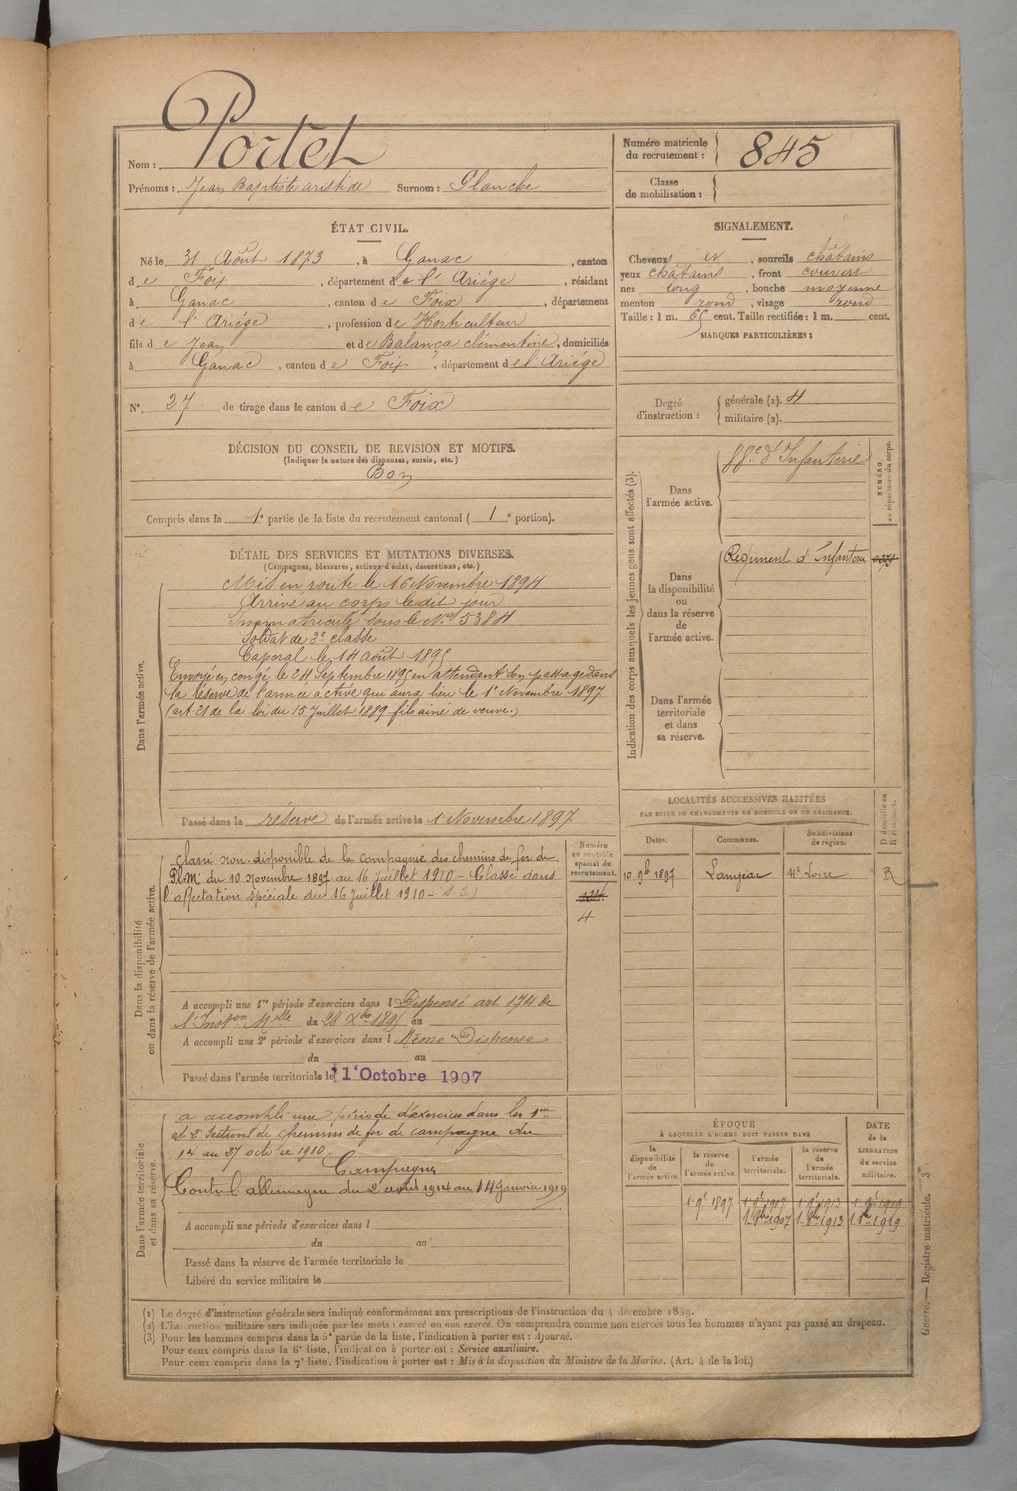 Nom : Portet
Prénoms : Jean Baptiste aristide Surnom : Planche
Numéro matricule du recrutement : 845
Classe de mobilisation :
ÉTAT CIVIL.
Né le 31 Août 1873, à Ganac, canton
de Foix, département de l'Ariége, résidant
à Ganac, canton de Foix, département
de l'Ariége, profession de Horticulteur
fils de Jean et de Balança clémentine, domiciliés
à Ganac, canton de Foix, département de l'Ariége
N° 27 de tirage dans le canton de Foix
SIGNALEMENT.
Cheveux et, sourcils châtains
yeux châtains, front couvert
nez long, bouche moyenne
menton rond, visage rond
Taille : 1 m. 65 cent. Taille rectifiée : 1 m. cent.
MARQUES PARTICULIÈRES :
Degré d'instruction : générale (1). 4
militaire (2).
DÉCISION DU CONSEIL DE REVISION ET MOTIFS.
(Indiquer la nature des dispenses, sursis, etc.)
Bon
Compris dans la 1e partie de la liste du recrutement cantonal (1e portion).
DÉTAIL DES SERVICES ET MUTATIONS DIVERSES.
(Campagnes, blessures, actions d'éclat, décorations, etc.)
Dans l'armée active.
Mis en route le 16 Novembre 1894
Arrivé au corps le dit jour
Immatriculé sous le N° 5384
Soldat de 2e classe
Caporal le 14 août 1895
Envoyé en congé le 24 Septembre 1895 en attendant son passage dans
la réserve de l'armée active qui aura lieu le 1e Novembre 1897
(art 21 de la loi du 15 Juillet 1889 fils ainé de veuve.)
Passé dans la réserve de l'armée active le 1 Novembre 1897
Indication des corps auxquels les jeunes gens sont affectés (3).
NUMÉRO au répertoire du corps.
Dans l'armée active. d'Infanterie
Dans la disponibilité ou dans la réserve de l'armée active. Régiment d'Infanterie
Dans l'armée territoriale et dans sa réserve.
LOCALITÉS SUCCESSIVES HABITÉES
PAR SUITE DE CHANGEMENTS DE DOMICILE OU DE RÉSIDENCE.
Dates. Communes. Subdivisions de région. D domicile ou R résidence.
10 9b 1897 Langeac Hte Loire R
Dans la disponibilité ou dans la réserve de l'armée active.
Numéro au contrôle spécial du recrutement.
Classé non-disponible de la compagnie des chemins de fer de
P.L.M. du 10 Novembre 1897 au 16 juillet 1910 - Classé dans
l'affectation spéciale du 16 juillet 1910 -
4
A accompli une 1re période d'exercices dans l Dispensé art 174 de
l'Inston Melle du 28 Xbre 1895 au
A accompli une 2e période d'exercices dans l Même Dispense
du au
Passé dans l'armée territoriale le 1e Octobre 1907
Dans l'armée territoriale et dans sa réserve.
a accompli une période d'exercices dans les 1re
et 2e Sections de chemins de fer de campagne du
au 27 octobre 1910
Campagne
Contre l'allemagne du 2 août 1914 au 14 Janvier 1919
A accompli une période d'exercices dans l
du au
Passé dans la réserve de l'armée territoriale le
Libéré du service militaire le
ÉPOQUE
À LAQUELLE L'HOMME DOIT PASSER DANS
la disponibilité de l'armée active. la réserve de l'armée active. l'armée territoriale. la réserve de l'armée territoriale.
DATE de la LIBÉRATION du service militaire.
1 9b 1897 1 9b 1907 1 9b 1913 1 9b 1919
1 8bre 1907 1 8bre 1913 1 8bre 1919
(1) Le degré d'instruction générale sera indiqué conformément aux prescriptions de l'instruction du 4 décembre 1889.
(2) L'instruction militaire sera indiquée par les mots : exercé ou non exercé. On comprendra comme non exercés tous les hommes n'ayant pas passé au drapeau.
(3) Pour les hommes compris dans la 5e partie de la liste, l'indication à porter est : Ajourné.
Pour ceux compris dans la 6e liste, l'indication à porter est : Service auxiliaire.
Pour ceux compris dans la 7e liste, l'indication à porter est : Mis à la disposition du Ministre de la Marine. (Art. 4 de la loi.)
Guerre. — Registre matricule. 3